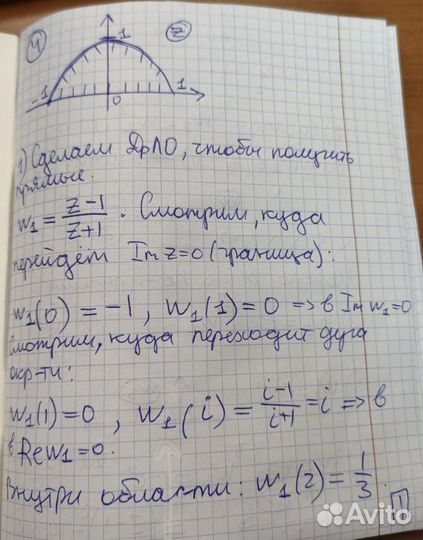 4
z
1
-1 0 1
1) Сделаем ДрЛО, чтобы получить
прямые.
w₁ = (z-1)/(z+1). Смотрим, куда
перейдёт Im z=0 (граница):
w₁(0) = -1, w₁(1) = 0 => в Im w₁=0
Смотрим, куда переходит дуга
окр-ти:
w₁(1)=0, w₁(i) = (i-1)/(i+1) = i => в
в Re w₁=0.
Внутри области: w₁(2) = 1/3.
1
Avito